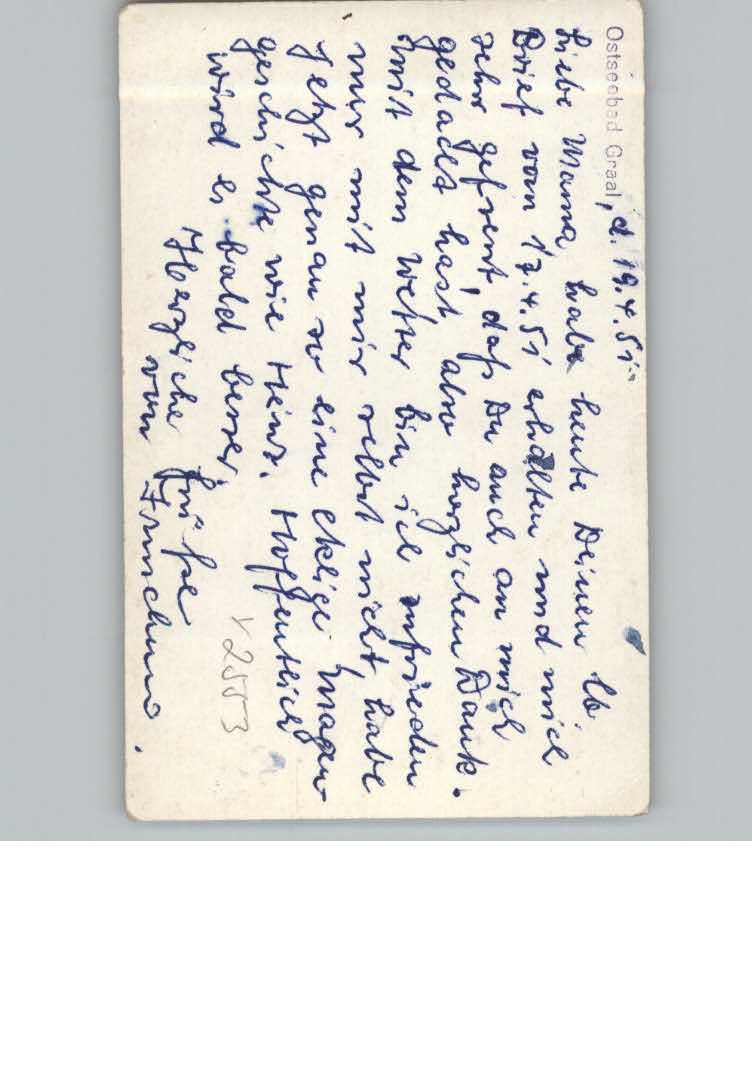 Ostseebad Graal, d. 19.4.51.
Liebe Mama habe heute Deinen lb.
Brief vom 17.4.51 erhalten und mich
sehr gefreut, daß Du auch an mich
gedacht hast also herzlichen Dank.
mit dem Wetter bin ich zufrieden
nur mit mir selbst nicht, habe
jetzt genau so eine eklige Magen
geschichte wie Heinz. Hoffentlich
wird es bald besser.
Herzliche Grüße
von
V2553